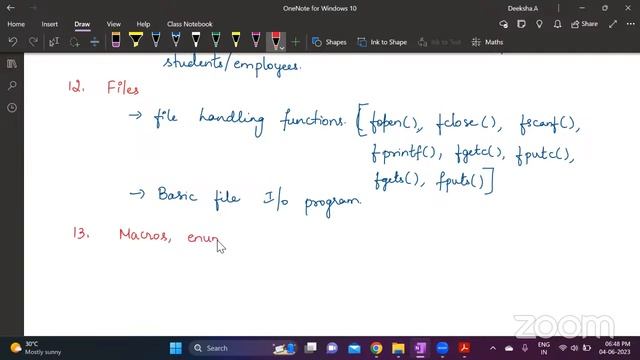 OneNote for Windows 10
Deeksha.A
Home
Insert
Draw
View
Help
Class Notebook
Shapes
Ink to Shape
Ink to Text
Maths
students/employees.
12. Files
→ file handling functions. [fopen(), fclose(), fscanf(),
fprintf(), fgetc(), fputc(),
fgets(), fputs()]
→ Basic file I/o program.
13. Macros, enum
zoom
30°C
Mostly sunny
Search
ENG
IN
06:48 PM
04-06-2023